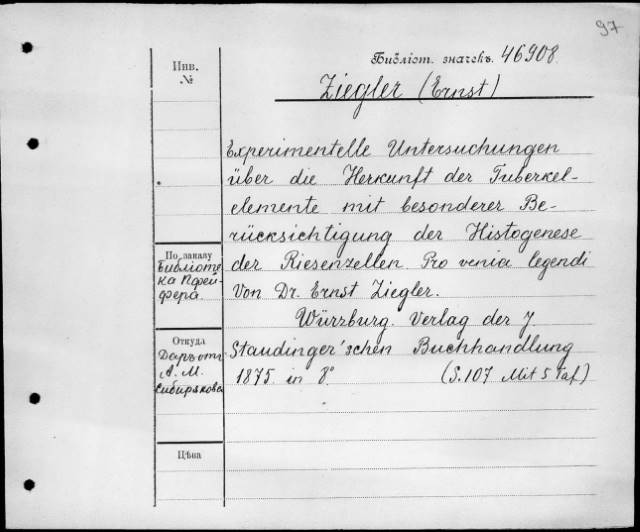 97
Библіот. значекъ. 46908.
Инв.
№
Ziegler (Ernst)
Experimentelle Untersuchungen
über die Herkunft der Tuberkel-
elemente mit besonderer Be-
rücksichtigung der Histogenese
der Riesenzellen. Pro venia legendi
Von Dr. Ernst Ziegler.
Würzburg. Verlag der J
Staudinger'schen Buchhandlung
1875. in 8°. (S. 107 Mit 5 Taf.)
По заказу
Библіоте
ка Пфей-
фера.
Откуда
Даръ отъ
А. М.
Сибирякова
Цѣна